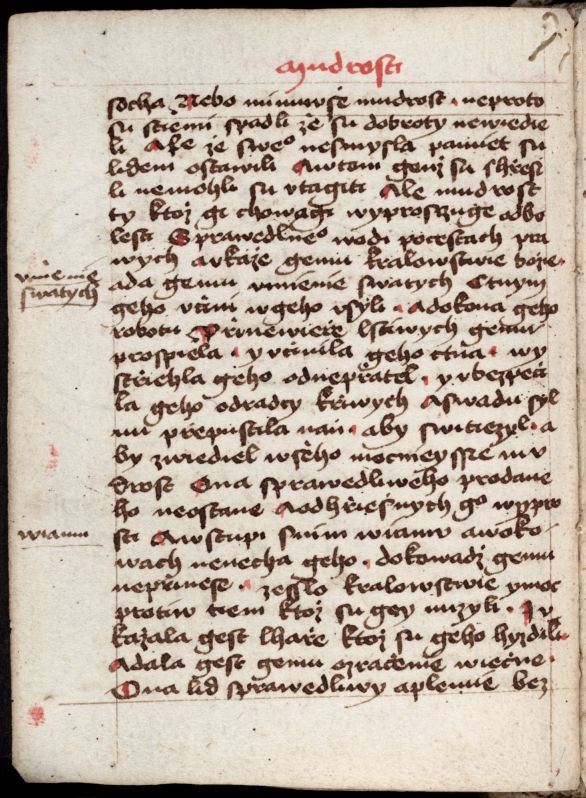 Mudrosti
socha Nebo minuwsse mudrost · neproto
su sciemi spadli ze su dobroty newiedie
li Ale ze sweo nesmysla pamiet su
lidem ostawili Awtom genz su shrzesi
li nemohli su vtagiti Ale mudrost
ty ktoz gi chowagi wyproszuge odbo
lesti Sprawedlneo wodi pocestach pra
wych avkaze gemu kralowstwie bozie ·
ada gemu vmienie swatych Ctnym
vmienie
swatych
geho vcini wgeho vsyli · Adokona geho
robotu Przinewierze lstiwych gemu
prospiela · yvcinila geho ctna · wy
strziehla geho odneprzatel · yvbezpeci
la geho odradcy krziwych Aswadu syl
nu przepustila nan · aby switiezyl · a
by zwiediel wsseho mocnieysse mu
drost Ona sprawedliweho prodane
ho neostane Aodhrziesnych go wypro
sti Awstupi snim wiamu awoko
wiamu
wach nenecha geho · dokowadz gemu
neprzinese · zesslo kralowstwie ymoc
protiw tiem ktoz su gey nuzyli · Iv
kazala gest lharze ktoz su geho hyzdili ·
Adala gest gemu ozracenie wieczne ·
Ona lid sprawedliwy aplemie bez